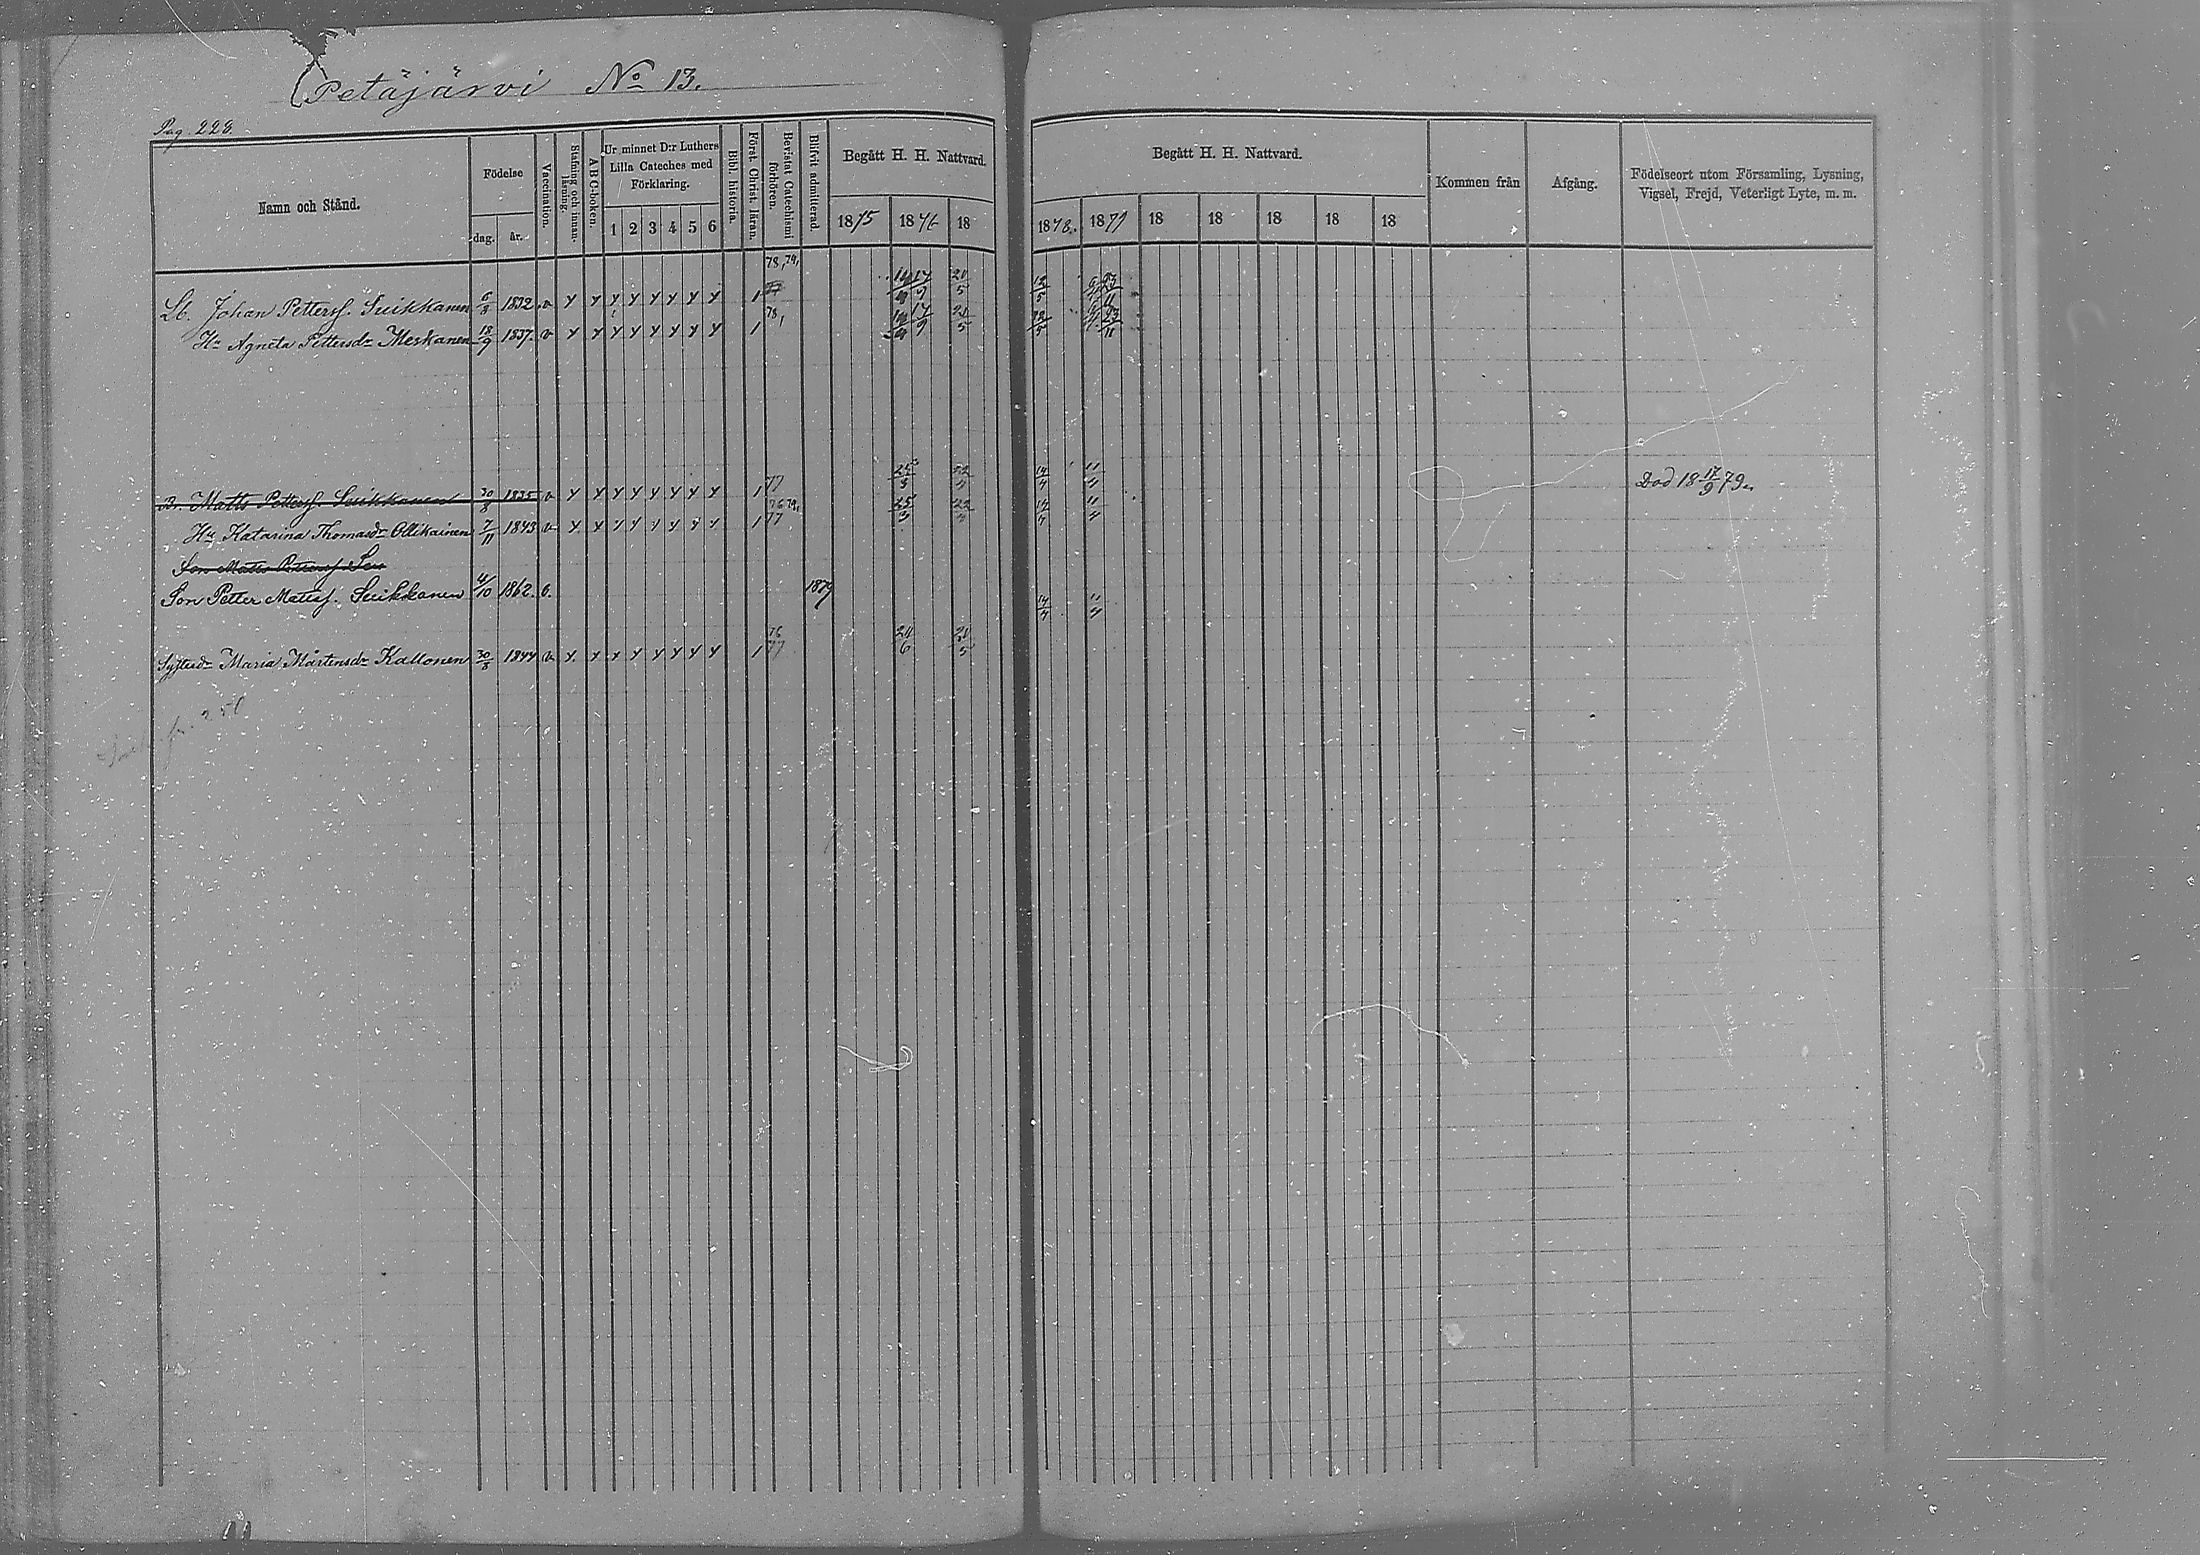 Petäjärvi No 13.
Pag. 228.
Namn och Stånd. Födelse dag. år. Vaccination. Stafning och innanläsning. ABC-boken. Ur minnet D:r Luthers Lilla Cateches med Förklaring. 1 2 3 4 5 6 Bibl. historia. Först. Christ. läran. Bevistat Catechismi förhören. Blifvit admitterad. Begått H. H. Nattvard. 1875 1876 18
Begått H. H. Nattvard. 1878. 1879 18 18 18 18 18 Kommen från Afgång. Födelseort utom Församling, Lysning, Vigsel, Frejd, Veterligt Lyte, m. m.
78, 79,
Lb. Johan Petterss. Suikkanen 6/8 1832 v y y y y y y y y 1 77 17/9 20/5 12/5 23/11
78,
Hu Agneta Pettersdr Meskanen 18/9 1837. v y y y y y y y y 1 17/9 20/5 23/11
Br. Matts Petterss. Suikkanen 30/8 1835 v y y y y y y y y 1 77 25/3 22/4 14/4 11/4 Död 18 17/9 79.
76 79,
Hu Katarina Thomasdr Ollikainen 7/11 1843 v y y y y y y y y 1 77 25/3 22/4 14/4 11/4
Son Matts Petterss. Sui
Son Petter Matss. Suikkanen 4/10 1862. v. 1879 14/4 11/4
76
Systerdr Maria Mårtensdr Kallonen 30/8 1844 v y y y y y y y y 1 77 24/6 20/5
251